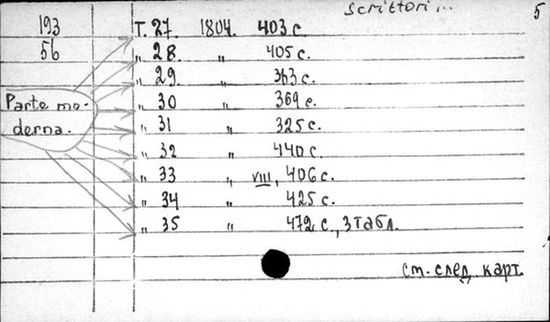 Scrittori... 5
193 Т. 27. 1804. 403 с.
56 „ 28 „ 405 с.
„ 29 „ 363 с.
Parte mo- „ 30 „ 369 с.
derna. „ 31 „ 325 с.
„ 32 „ 440 с.
„ 33 „ VIII, 406 с.
„ 34 „ 425 с.
„ 35 „ 472 с., 3 табл.
см. след. карт.